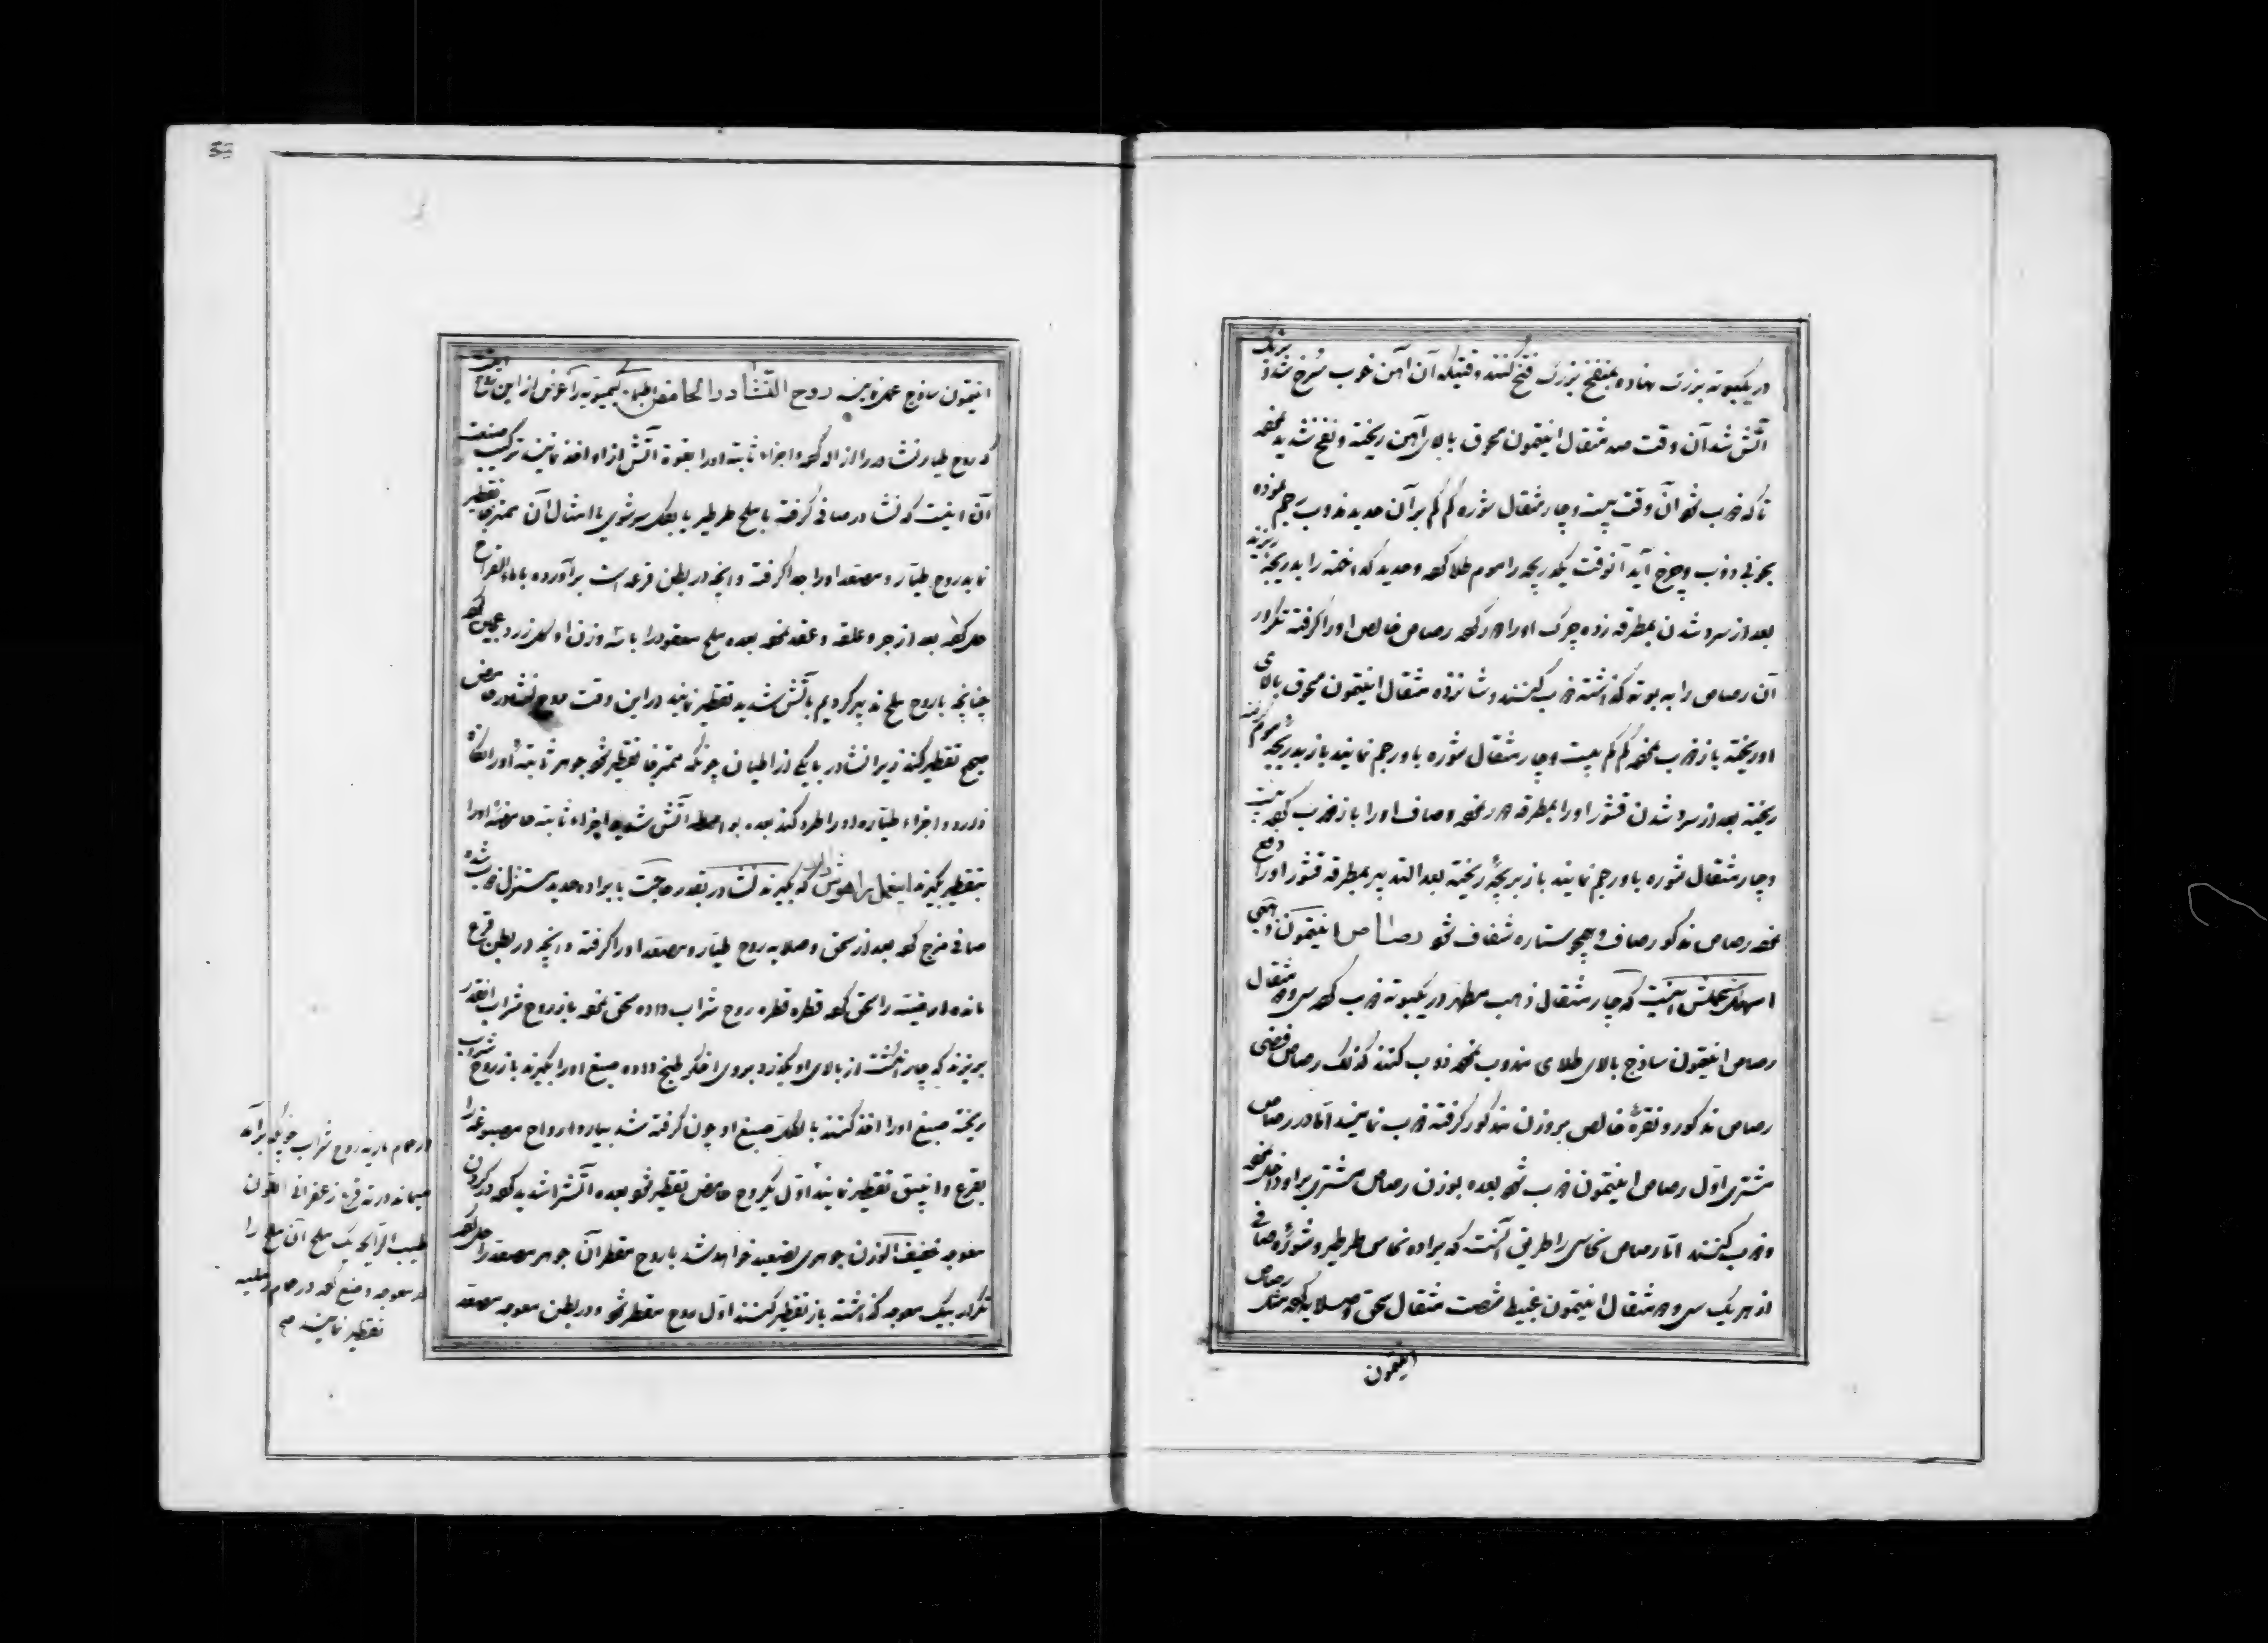 در یکبوته بزرگ نهاده بمنفخ بزرگ نفخ کنند وقتیکه آن آهن خوب سُرخ شده بزنک
آتش شد آن وقت صد مثقال انیتمون محرق بالای آهن ریخته و نفخ شدید نموده
تا که ذوب شود آن وقت بیست و چار مثقال شوره کم کم بر آن حدید مذوب رجم نموده
بخوبی ذوب و چرخ آید آنوقت یکریچه را موم طلا کرده و حدید گداخته را بدریچه ریزند
بعد از سرد شدن بمطرقه زده چرک اورا دور کرده رصاص خالص اورا گرفته تکرار
آن رصاص را به بوته گذاشته ذوب کنند و شانزده مثقال انیتمون محرق بالای
او ریخته باز ذوب نموده کم کم بیست و چار مثقال شوره باو رجم نمایند باز بدریچه
ریخته بعد از سرد شدن قشور اورا بمطرقه دور نموده و صاف اورا باز ذوب کرده بیست
و چار مثقال شوره باو رجم نمایند باز بریچه ریخته بعد التدبیر بمطرقه قشور اورا دفع
نموده رصاص مذکور صاف و همچو ستاره شفاف شود رصاص انیتمون ذهبی
اسهل عملش اینست که چار مثقال ذهب مطهر در یکبوته ذوب کرده سی و دو مثقال
رصاص انیتمون ساذج بالای طلای مذوب نموده ذوب کنند کذلک رصاص فضی
رصاص مذکور و نقرهٔ خالص بر وزن مذکور گرفته ذوب نمایند اما در رصاص
مشتری اول رصاص انیتمون ذوب شود بعده بوزن رصاص مشتری براو داخل نموده
و ذوب کنند اما رصاص نحاسی را طریق آنست که براده نحاس طرطیر و شورهٔ صافی
از هر یک سی و دو مثقال انیتمون غبیط شصت مثقال سحق و صلایه کرده مثل رصاص
انیتمون
انیتمون ساذج عمل نمایند روح النشادر الحامض اطباء کیمیویه را غرض از این
که روح طیار نشادر را ازاله کرده و اجزاء ثابته اورا بقوة آتش از او اخذ نمایند ترکیب صنعت
آن اینست که نشادر صافی گرفته با ملح طرطیر یا بکلس و شوی یا امثال آن ممزجا تقطیر
نمایند روح طیار و مصعد اورا جدا گرفته و آنچه در بطن قرعه است برآورده با ماء القراح
حل کرده بعد از جر و علقه و عقد نموده بعده ملح معقود را با سه وزن او کل زرد عجین کرده
چنانچه با روح ملح تدبیر کردیم بآتش شدید تقطیر نمایند در این وقت روح نشادر حامض
صحیح تقطیر کند زیرا نشادر با یکی از اطیان چونکه ممزجا تقطیر شود جوهر ثابتهٔ اورا نگاه
دارد و اجزاء طیاره اورا طرد کند بعده بواسطه آتش شدید اجزاء ثابته حامضهٔ اورا
بتقطیر بگیرند که بگیرند نشادر بقدر حاجت با براده حدید مستنزل شده
صافی مزج کرده بعد از سحق و صلایه روح طیار و مصعد اورا گرفته و آنچه در بطن قرع
مانده ارضیته را سحق کرده قطره قطره روح شراب داده سحق نموده باز روح شراب انقدر
بریزند که چار انگشت از بالای او بگذرد بروی اخگر طبخ داده صبغ اورا بگیرند باز روح شراب
ریخته صبغ اورا اخذ کنند بالکلیه صبغ او چون گرفته شد بیار و ارواح مصبوغه را
بقرع و انبیق تقطیر نمایند اول یکروح حامض تقطیر شود بعده آتش را شدید کرده در گردن
معوجه خفیف الوزن جوهری تصعید خواهد شد با روح مقطر آن جوهر مصعد را حل کرده
تکرار بیک معوجه گذاشته باز تقطیر کنند اول روح مقطر شود و در بطن معوجه مصعد
از حمام ماریه روح شراب چونکه برآید
میماند در ته قرع زعفرانی اللون
طیب الرایحه یک ملح آن ملح را
در معوجه وضع کرده در حمام رملیه
تقطیر نمایند صح
33